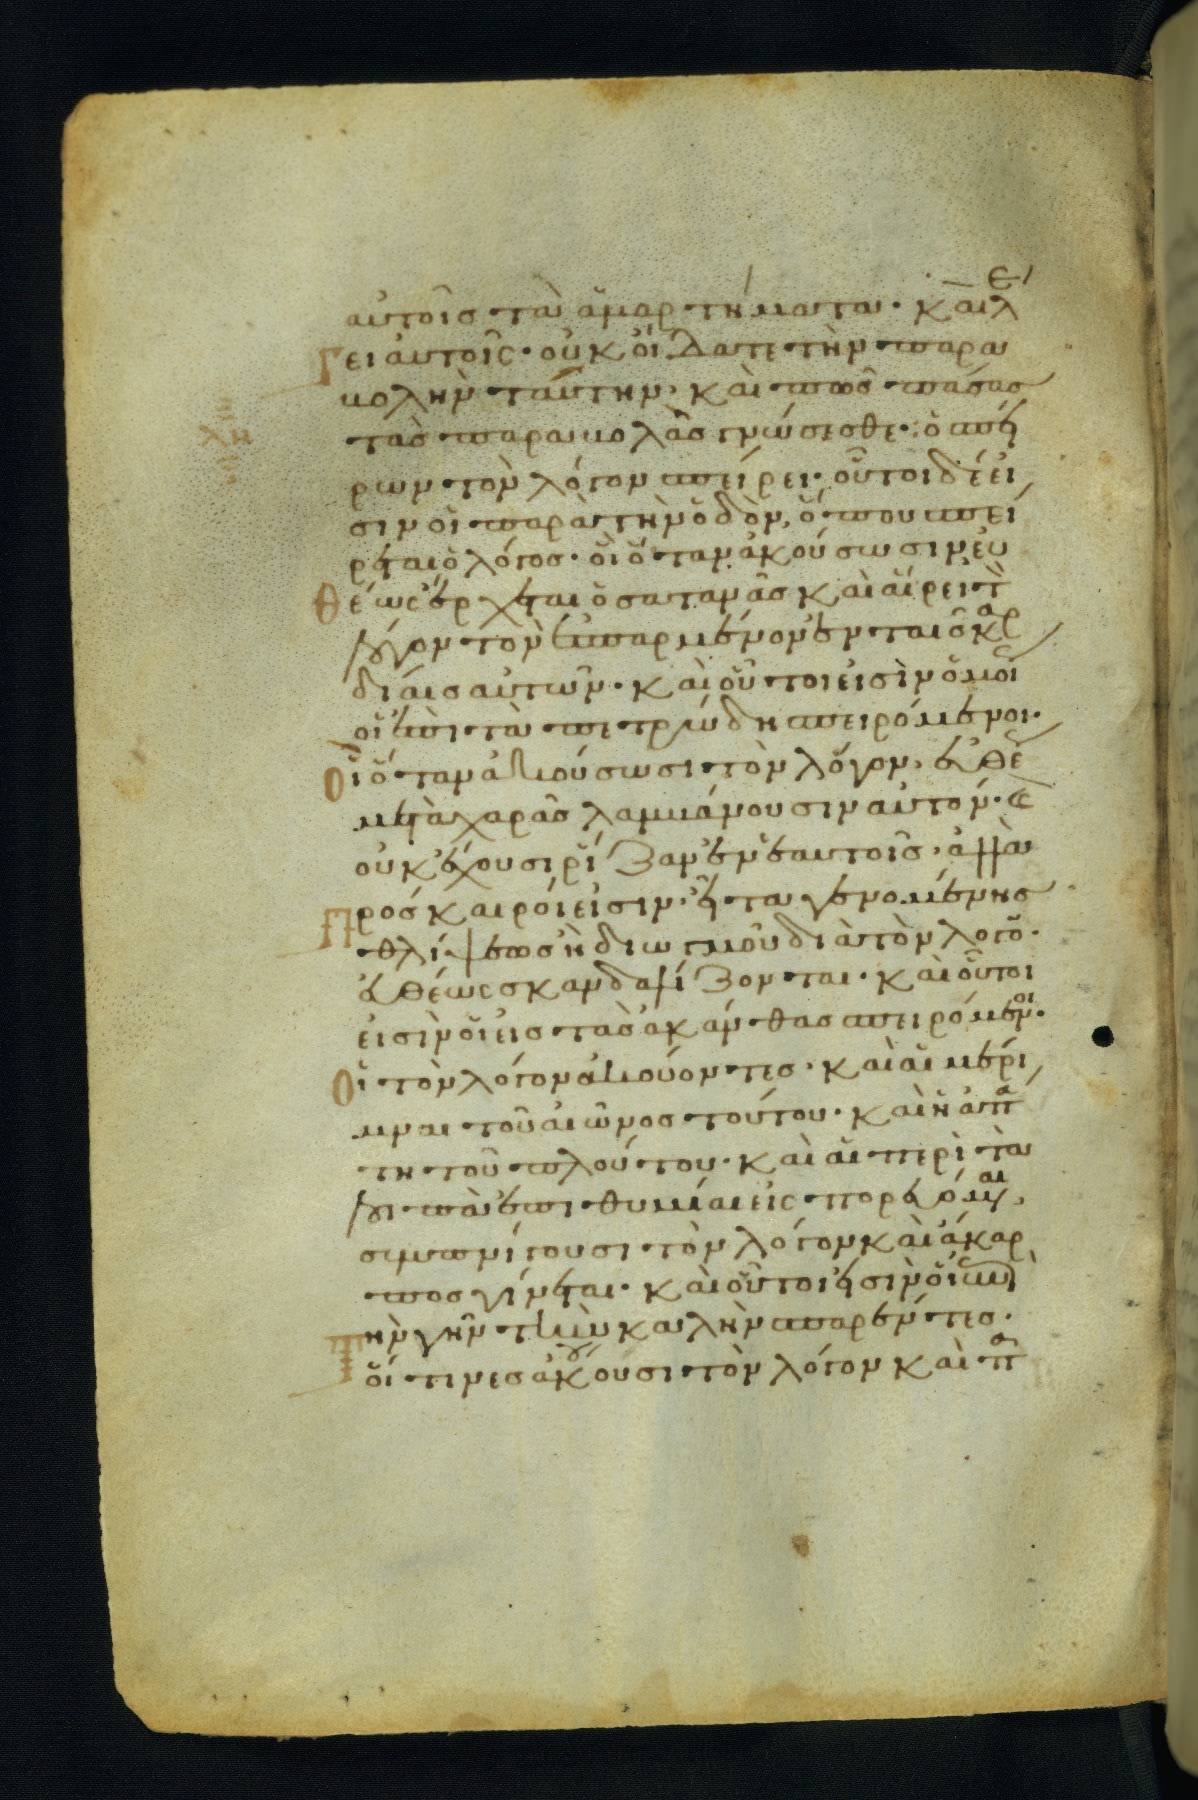 αὐτοῖς τὰ ἁμαρτήματα· καὶ λέ
γει αὐτοῖς· οὐκ οἴδατε τὴν παρα
βολὴν ταύτην· καὶ πῶς πάσας
τὰς παραβολὰς γνώσεσθε· ὁ σπεί
ρων τὸν λόγον σπείρει· οὗτοι δέ εἰ
σιν οἱ παρὰ τὴν ὁδὸν, ὅπου σπεί
ρεται ὁ λόγος· οἳ ὅταν ἀκούσωσιν εὐ
θέως ἔρχεται ὁ σατανᾶς καὶ αἴρει τὸ
λόγον τὸν ἐσπαρμένον ἐν ταῖς καρ
δίαις αὐτῶν· καὶ οὗτοι εἰσὶν ὁμοί
οἱ ἐπὶ τὰ πετρώδη σπειρόμενοι·
οἳ ὅταν ἀκούσωσι τὸν λόγον, εὐθέ
μετὰ χαρᾶς λαμβάνουσιν αὐτόν· καὶ
οὐκ ἔχουσι ρίζαν ἐν ἑαυτοῖς· ἀλλὰ
πρόσκαιροί εἰσιν· εἶτα γενομένης
θλίψεως ἢ διωγμοῦ διὰ τὸν λόγον·
εὐθέως σκανδαλίζονται· καὶ οὗτοι
εἰσὶν οἱ εἰς τὰς ἀκάνθας σπειρόμενοι·
οἱ τὸν λόγον ἀκούοντες· καὶ αἱ μέρι
μναι τοῦ αἰῶνος τούτου· καὶ ἡ ἀπά
τη τοῦ πλούτου· καὶ αἱ περὶ τὰ
λοιπὰ ἐπιθυμίαι εἰσπορευόμεναι,
συμπνίγουσι τὸν λόγον καὶ ἄκαρ
πος γίνεται· καὶ οὗτοι εἰσὶν οἱ ἐπὶ
τὴν γῆν τὴν καλὴν σπαρέντες·
οἵτινες ἀκούουσι τὸν λόγον καὶ πα